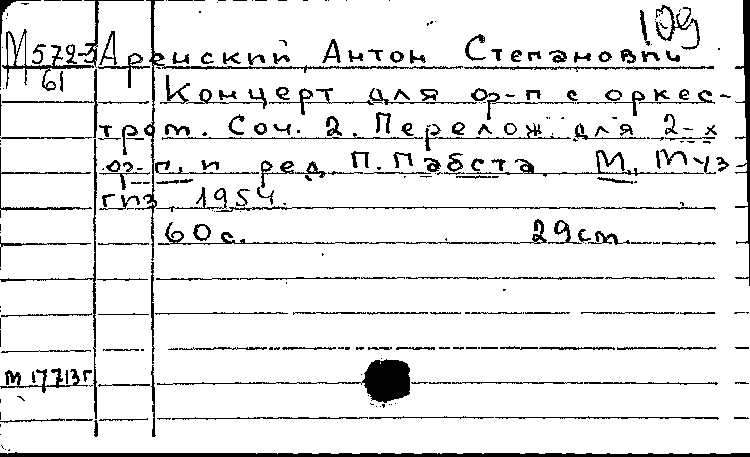 109
М 572-3 Аренский, Антон Степанович
61
Концерт для ф-п с оркес-
тром. Соч. 2. Перелож. для 2-х
ф-п. и ред. П. Пабста. М., Муз-
гиз, 1954.
60 с. 29 см.
М 17713г